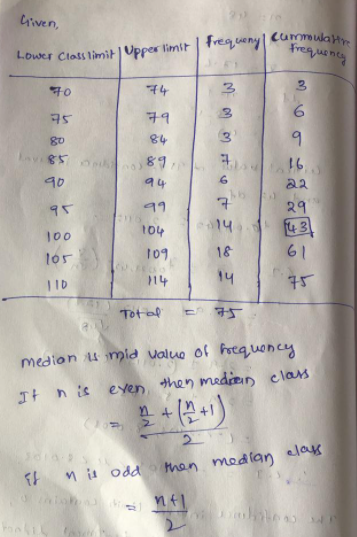 Given,
Lower Class limit | Upper limit | frequency | Cummulative frequency
70 74 3 3
75 79 3 6
80 84 3 9
85 89 7 16
90 94 6 22
95 99 7 29
100 104 14 43
105 109 18 61
110 114 14 75
Total = 75
median is mid value of frequency
If n is even then median class
n/2 + (n/2 + 1)
2
if n is odd then median class
= n+1
2